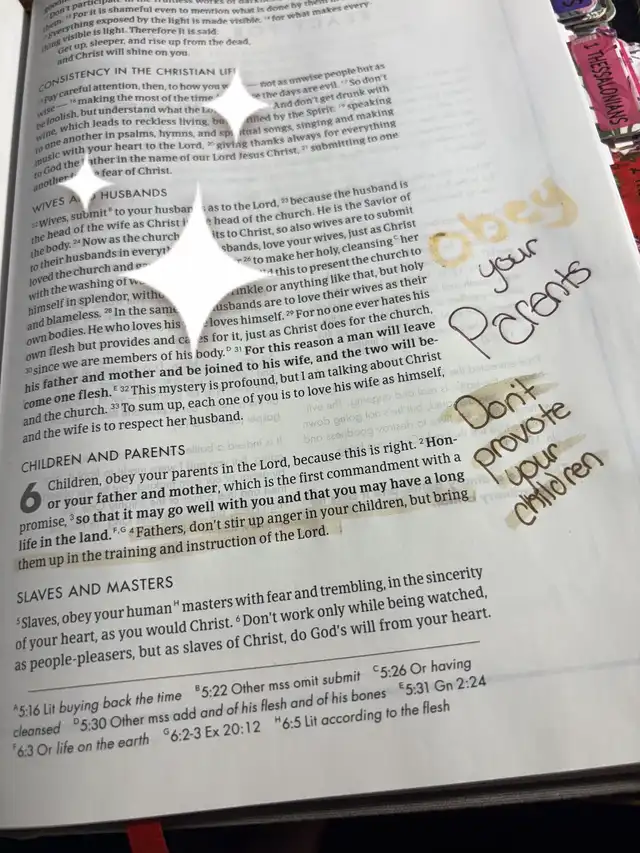 participate in the fruitless works of dark
them. ¹² For it is shameful even to mention what is done by them
¹³ Everything exposed by the light is made visible, ¹⁴ for what makes every
thing visible is light. Therefore it is said:
Get up, sleeper, and rise up from the dead,
and Christ will shine on you.
CONSISTENCY IN THE CHRISTIAN LIF
¹⁵ Pay careful attention, then, to how you — not as unwise people but as
wise — ¹⁶ making the most of the time the days are evil. ¹⁷ So don't
be foolish, but understand what the And don't get drunk with
wine, which leads to reckless living, bu filled by the Spirit: ¹⁹ speaking
to one another in psalms, hymns, and spiritual songs, singing and making
music with your heart to the Lord, ²⁰ giving thanks always for everything
to God the Father in the name of our Lord Jesus Christ, ²¹ submitting to one
another fear of Christ.
WIVES AND HUSBANDS
²² Wives, submitᴮ to your husbands as to the Lord, ²³ because the husband is
the head of the wife as Christ head of the church. He is the Savior of
the body. ²⁴ Now as the church its to Christ, so also wives are to submit
to their husbands in everyt sbands, love your wives, just as Christ
loved the church and ²⁶ to make her holy, cleansingᶜ her
with the washing of w this to present the church to
himself in splendor, witho rinkle or anything like that, but holy
and blameless. ²⁸ In the same usbands are to love their wives as their
own bodies. He who loves his loves himself. ²⁹ For no one ever hates his
own flesh but provides and cares for it, just as Christ does for the church,
³⁰ since we are members of his body.ᴰ ³¹ For this reason a man will leave
his father and mother and be joined to his wife, and the two will be-
come one flesh.ᴱ ³² This mystery is profound, but I am talking about Christ
and the church. ³³ To sum up, each one of you is to love his wife as himself,
and the wife is to respect her husband.
CHILDREN AND PARENTS
6 Children, obey your parents in the Lord, because this is right. ² Hon-
or your father and mother, which is the first commandment with a
promise, ³ so that it may go well with you and that you may have a long
life in the land.ꟳ,ᴳ ⁴ Fathers, don't stir up anger in your children, but bring
them up in the training and instruction of the Lord.
SLAVES AND MASTERS
⁵ Slaves, obey your humanᴴ masters with fear and trembling, in the sincerity
of your heart, as you would Christ. ⁶ Don't work only while being watched,
as people-pleasers, but as slaves of Christ, do God's will from your heart.
ᴬ5:16 Lit buying back the time ᴮ5:22 Other mss omit submit ᶜ5:26 Or having
cleansed ᴰ5:30 Other mss add and of his flesh and of his bones ᴱ5:31 Gn 2:24
ꟳ6:3 Or life on the earth ᴳ6:2-3 Ex 20:12 ᴴ6:5 Lit according to the flesh
obey
your
Parents
Don't
provote
your
children
1 THESSALONIANS